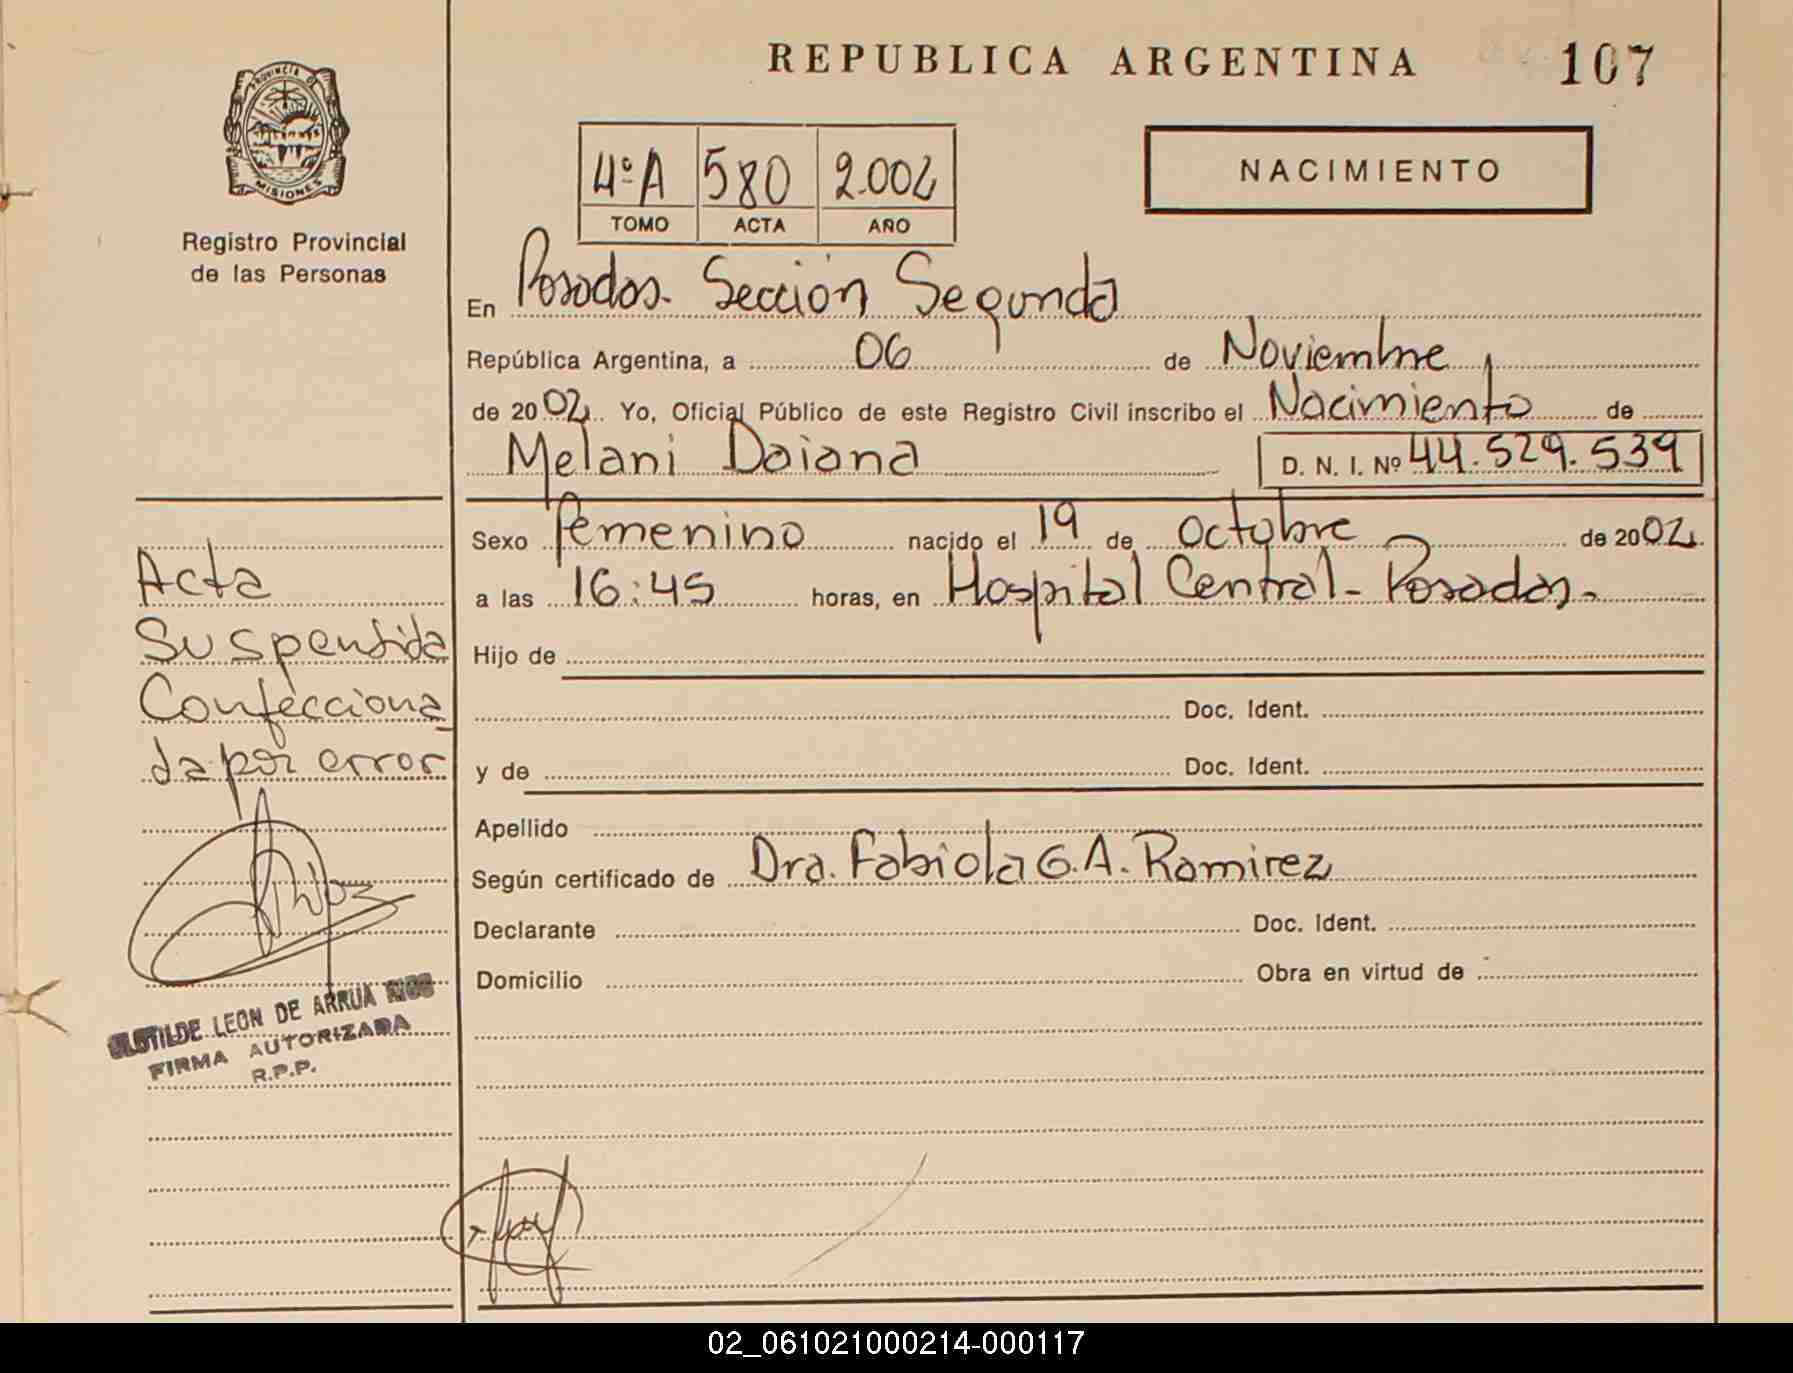 REPUBLICA ARGENTINA 107
PROVINCIA DE
MISIONES
Registro Provincial
de las Personas
4º A 580 2.002
TOMO ACTA AÑO
NACIMIENTO
En Posadas. Sección Segunda
República Argentina, a 06 de Noviembre
de 2002. Yo, Oficial Público de este Registro Civil inscribo el Nacimiento de
Melani Daiana D. N. I. Nº 44.529.539
Sexo femenino nacido el 19 de octubre de 2002.
a las 16:45 horas, en Hospital Central - Posadas.
Hijo de
Doc. Ident.
y de Doc. Ident.
Apellido
Según certificado de Dra. Fabiola G.A. Ramirez
Declarante Doc. Ident.
Domicilio Obra en virtud de
Acta
Suspendida
Confecciona
da por error
CLOTILDE LEON DE ARRUA RIOS
FIRMA AUTORIZADA
R.P.P.
02_061021000214-000117